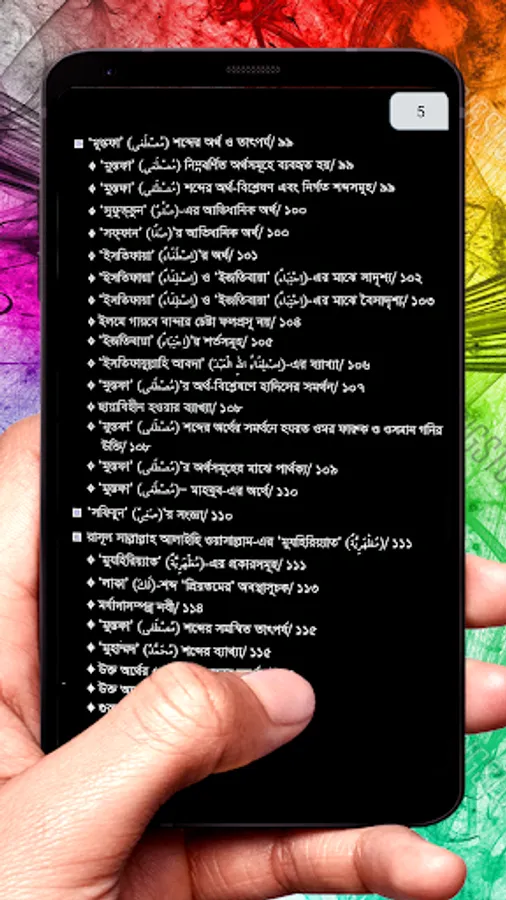 5
▣ 'মুস্তফা' (مُصْطَفٰى) শব্দের অর্থ ও তাৎপর্য/ ৯৯
♦ 'মুস্তফা' (مُصْطَفٰى) নিম্নবর্ণিত অর্থসমূহে ব্যবহৃত হয়/ ৯৯
♦ 'মুস্তফা' (مُصْطَفٰى) শব্দের অর্থ-বিশ্লেষণ এবং নির্গত শব্দসমূহ/ ৯৯
♦ 'সুফুব্বুন' -এর আভিধানিক অর্থ/ ১০০
♦ 'সফ্ফান' 'র আভিধানিক অর্থ/ ১০০
♦ 'ইসতিফায়া' (اِصْطِفَاءٌ)'র অর্থ/ ১০১
♦ 'ইসতিফায়া' (اِصْطِفَاءٌ) ও 'ইজতিবায়া' (اِجْتِبَاءٌ)-এর মাঝে সাদৃশ্য/ ১০২
♦ 'ইসতিফায়া' (اِصْطِفَاءٌ) ও 'ইজতিবায়া' (اِجْتِبَاءٌ)-এর মাঝে বৈসাদৃশ্য/ ১০৩
♦ ইলমে গায়বে বান্দার চেষ্টা ফলপ্রসূ নয়/ ১০৪
♦ 'ইজতিবায়া' (اِجْتِبَاءٌ)'র শর্তসমূহ/ ১০৫
♦ 'ইসতিফাযুল্লাহি আবদা' (اِصْطِفَاءُ اللهِ الْعَبْدَ)-এর ব্যাখ্যা/ ১০৬
♦ 'মুস্তফা' (مُصْطَفٰى)'র অর্থ-বিশ্লেষণে হাদিসের সমর্থন/ ১০৭
♦ ছায়াবিহীন হওয়ার ব্যাখ্যা/ ১০৮
♦ 'মুস্তফা' (مُصْطَفٰى) শব্দের অর্থের সমর্থনে হযরত ওমর ফারুক ও ওসমান গনির
উক্তি/ ১০৮
♦ 'মুস্তফা' (مُصْطَفٰى)'র অর্থসমূহের মাঝে পার্থক্য/ ১০৯
♦ 'মুস্তফা' (مُصْطَفٰى)– মাহবুব-এর অর্থে/ ১১০
▣ 'সফিয়ুন' (صَفِيٌّ)'র সংজ্ঞা/ ১১০
▣ রাসূল সাল্লাল্লাহু আলাইহি ওয়াসাল্লাম-এর 'মুযহিরিয়্যাত' (مُظْهِرِيَّةٌ)/ ১১১
♦ 'মুযহিরিয়্যাত' (مُظْهِرِيَّةٌ)-এর প্রকারসমূহ/ ১১১
♦ 'লাকা' (لَكَ)-শব্দ 'প্রিয়তমের' অবস্থাসূচক/ ১১৩
♦ মর্যাদাসম্পন্ন নবী/ ১১৪
♦ 'মুস্তফা' (مُصْطَفٰى) শব্দের সমন্বিত তাৎপর্য/ ১১৫
♦ 'মুহাম্মদ' (مُحَمَّدٌ) শব্দের ব্যাখ্যা/ ১১৫
♦ উক্ত অর্থের
♦ উক্ত